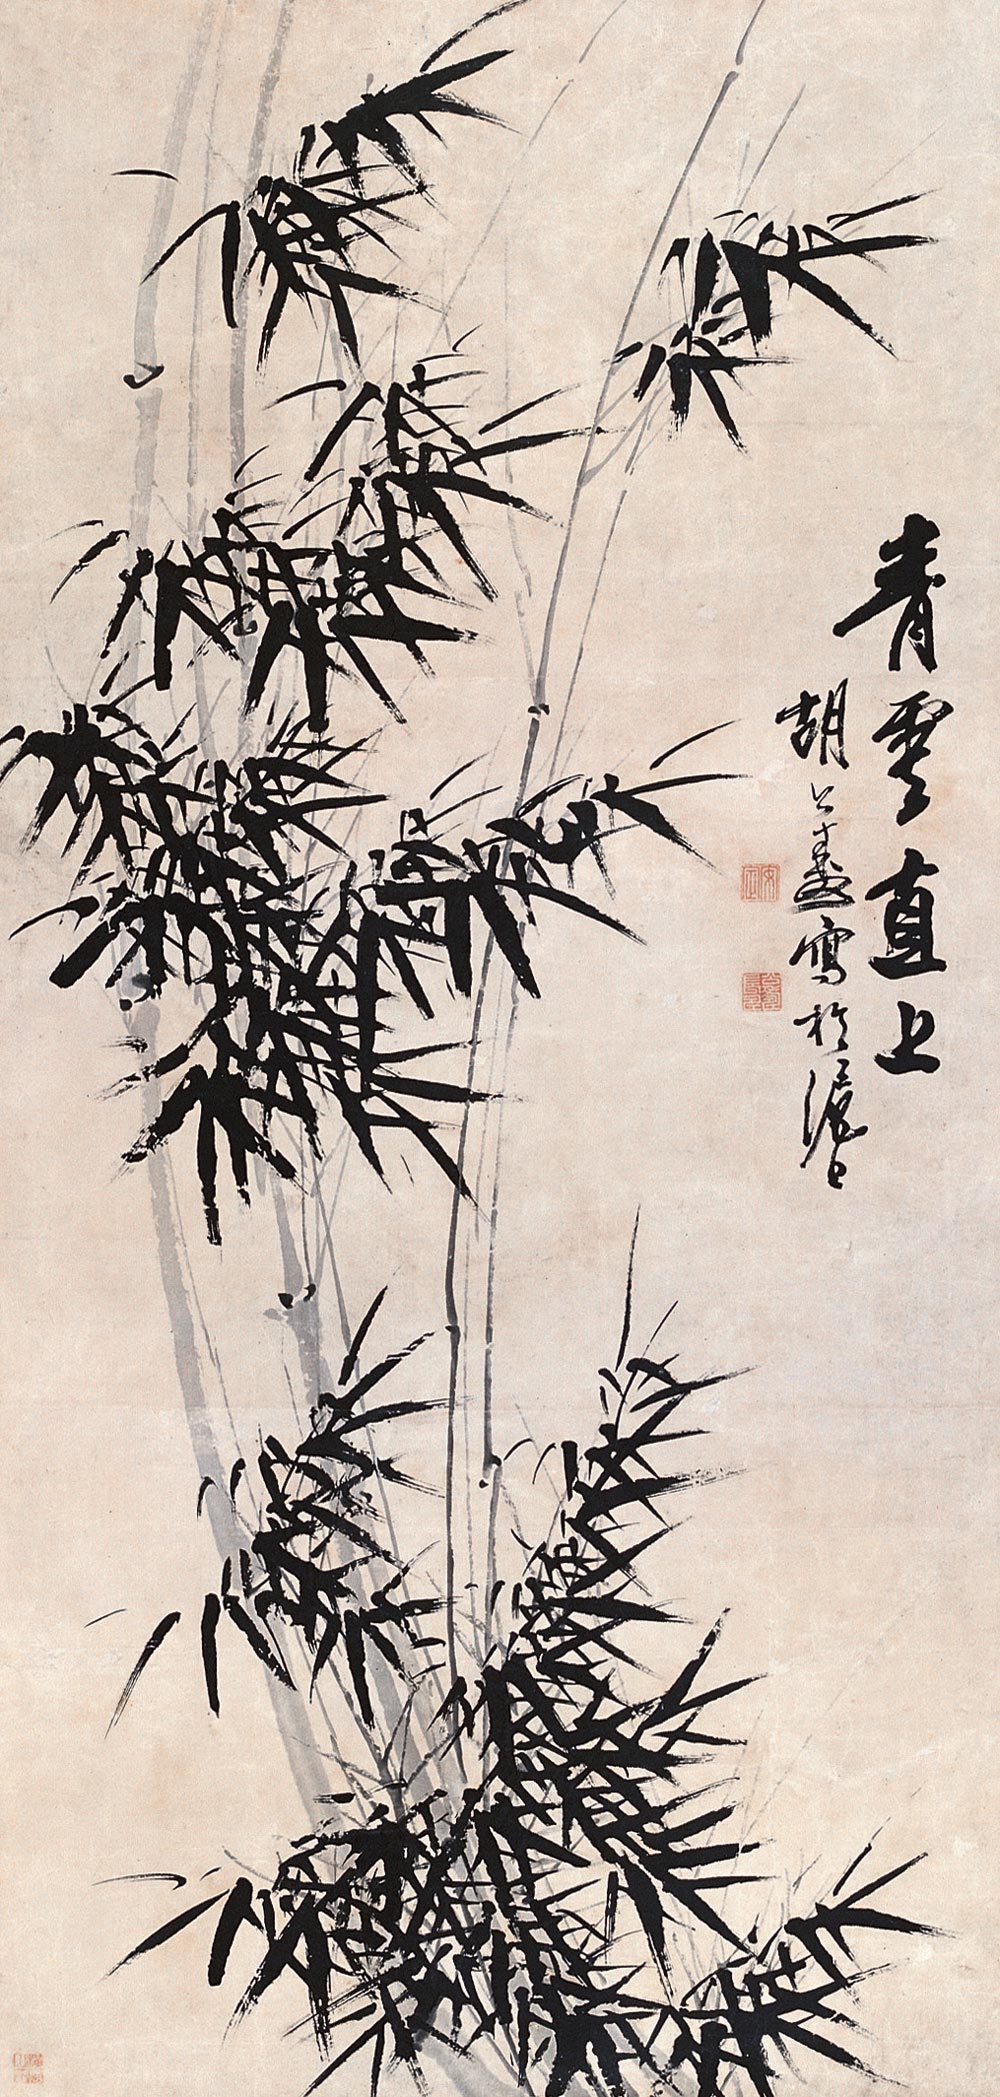 青雲直上
胡公壽寫於滬上